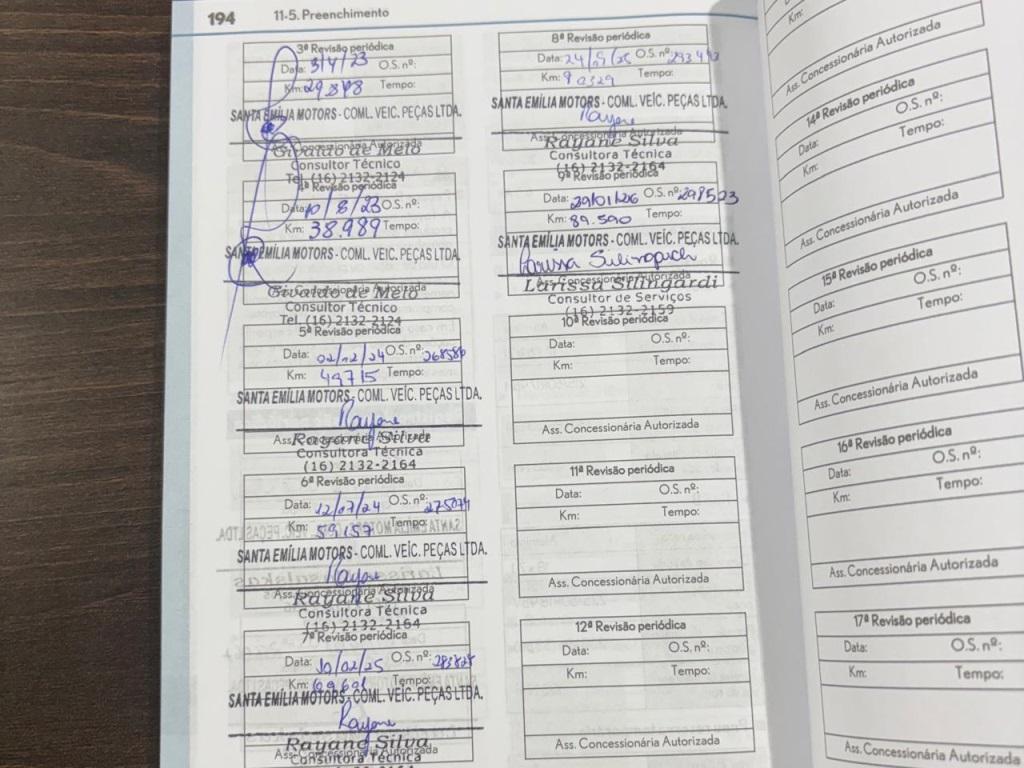 194 11-5. Preenchimento
3ª Revisão periódica
Data: 3/4/23 O.S. nº:
Km: 29.878 Tempo:
SANTA EMÍLIA MOTORS - COML. VEÍC. PEÇAS LTDA.
Ass. Concessionária Autorizada
Givaldo de Melo
Consultor Técnico
Tel. (16) 2132-2124
4ª Revisão periódica
Data: 10/8/23 O.S. nº:
Km: 38.989 Tempo:
SANTA EMÍLIA MOTORS - COML. VEÍC. PEÇAS LTDA.
Ass. Concessionária Autorizada
Givaldo de Melo
Consultor Técnico
Tel. (16) 2132-2124
5ª Revisão periódica
Data: 02/12/24 O.S. nº: 268580
Km: 49715 Tempo:
SANTA EMÍLIA MOTORS - COML. VEÍC. PEÇAS LTDA.
Rayane
Ass. Concessionária Autorizada
Rayane Silva
Consultora Técnica
(16) 2132-2164
6ª Revisão periódica
Data: 12/07/24 O.S. nº: 275074
Km: 59.157 Tempo:
SANTA EMÍLIA MOTORS - COML. VEÍC. PEÇAS LTDA.
Rayane
Ass. Concessionária Autorizada
Rayane Silva
Consultora Técnica
(16) 2132-2164
7ª Revisão periódica
Data: 10/02/25 O.S. nº:
Km: Tempo:
SANTA EMÍLIA MOTORS - COML. VEÍC. PEÇAS LTDA.
Rayane
Ass. Concessionária Autorizada
Rayane Silva
Consultora Técnica
8ª Revisão periódica
Data: O.S. nº: 293493
Km: Tempo:
SANTA EMÍLIA MOTORS - COML. VEÍC. PEÇAS LTDA.
Rayane
Ass. Concessionária Autorizada
Rayane Silva
Consultora Técnica
(16) 2132-2164
9ª Revisão periódica
Data: 29/01/26 O.S. nº: 298523
Km: 89.590 Tempo:
SANTA EMÍLIA MOTORS - COML. VEÍC. PEÇAS LTDA.
Ass. Concessionária Autorizada
Larissa Silingardi
Consultor de Serviços
(16) 2132-2159
10ª Revisão periódica
Data: O.S. nº:
Km: Tempo:
Ass. Concessionária Autorizada
11ª Revisão periódica
Data: O.S. nº:
Km: Tempo:
Ass. Concessionária Autorizada
12ª Revisão periódica
Data: O.S. nº:
Km: Tempo:
Ass. Concessionária Autorizada
Km:
Ass. Concessionária Autorizada
14ª Revisão periódica
Data: O.S. nº:
Km: Tempo:
Ass. Concessionária Autorizada
15ª Revisão periódica
Data: O.S. nº:
Km: Tempo:
Ass. Concessionária Autorizada
16ª Revisão periódica
Data: O.S. nº:
Km: Tempo:
Ass. Concessionária Autorizada
17ª Revisão periódica
Data: O.S. nº:
Km: Tempo:
Ass. Concessionária Autorizada